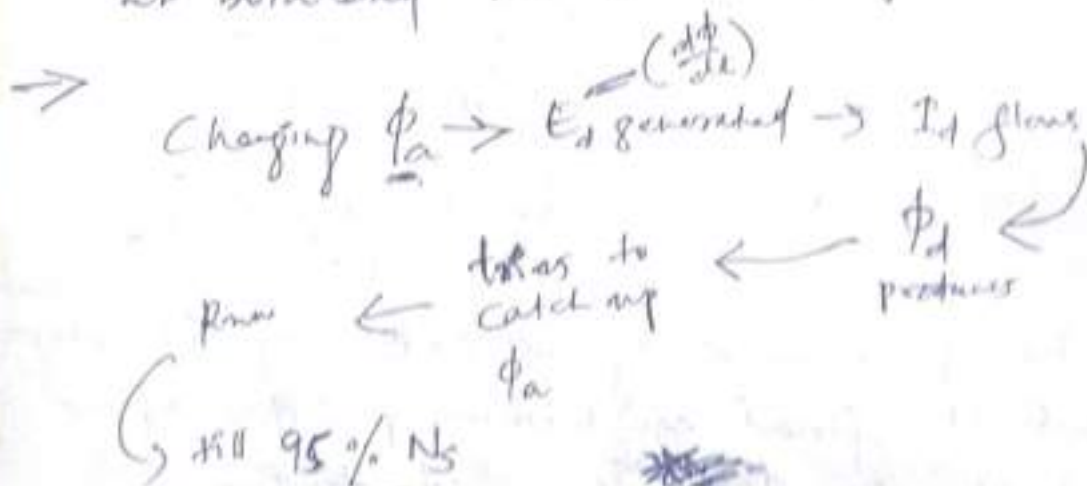 (dϕ/dt)
→ Changing ϕa → Ed generated → Id flows
ϕd produces
tries to catch up ϕa
Run
till 95 % Ns